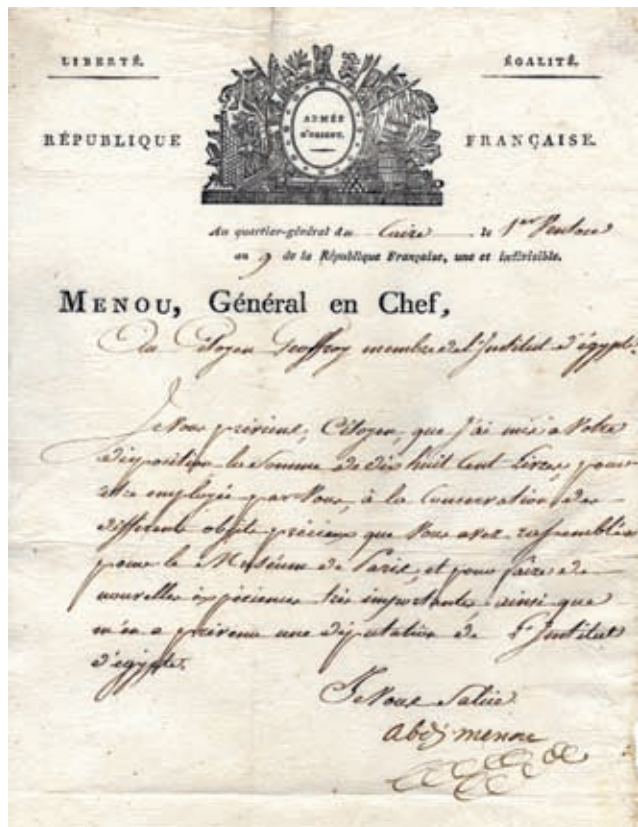 LIBERTÉ.
ÉGALITÉ.
ARMÉE
D'ORIENT.
RÉPUBLIQUE
FRANÇAISE.
Au quartier-général du Caire le 1er Ventose
an 9 de la République Française, une et indivisible.
MENOU, Général en Chef,
Au Citoyen Geoffroy membre de l'Institut d'égypte.
Je Vous préviens, Citoyen, que j'ai mis à Votre
disposition la Somme de dix huit Cent Livres, pour
etre employée par Vous, à la Conservation des
différents objets précieux que Vous avez rassemblés
pour le Muséum de Paris, et pour faire de
nouvelles expériences très importantes, ainsi que
m'en a prévenu une députation de l'Institut
d'égypte.
Je Vous Salue
abdj menou